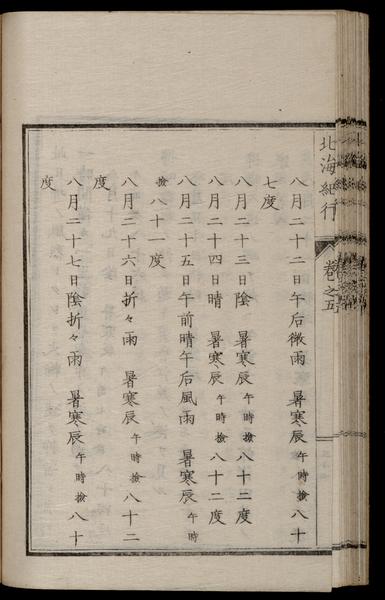 北海紀行 卷之五
八月二十二日午后微雨 暑寒辰午時撿八十
七度
八月二十三日陰 暑寒辰午時撿八十二度
八月二十四日晴 暑寒辰午時撿八十二度
八月二十五日午前晴午后風雨 暑寒辰午時
撿八十一度
八月二十六日折々雨 暑寒辰午時撿八十二
度
八月二十七日陰折々雨 暑寒辰午時撿八十
度